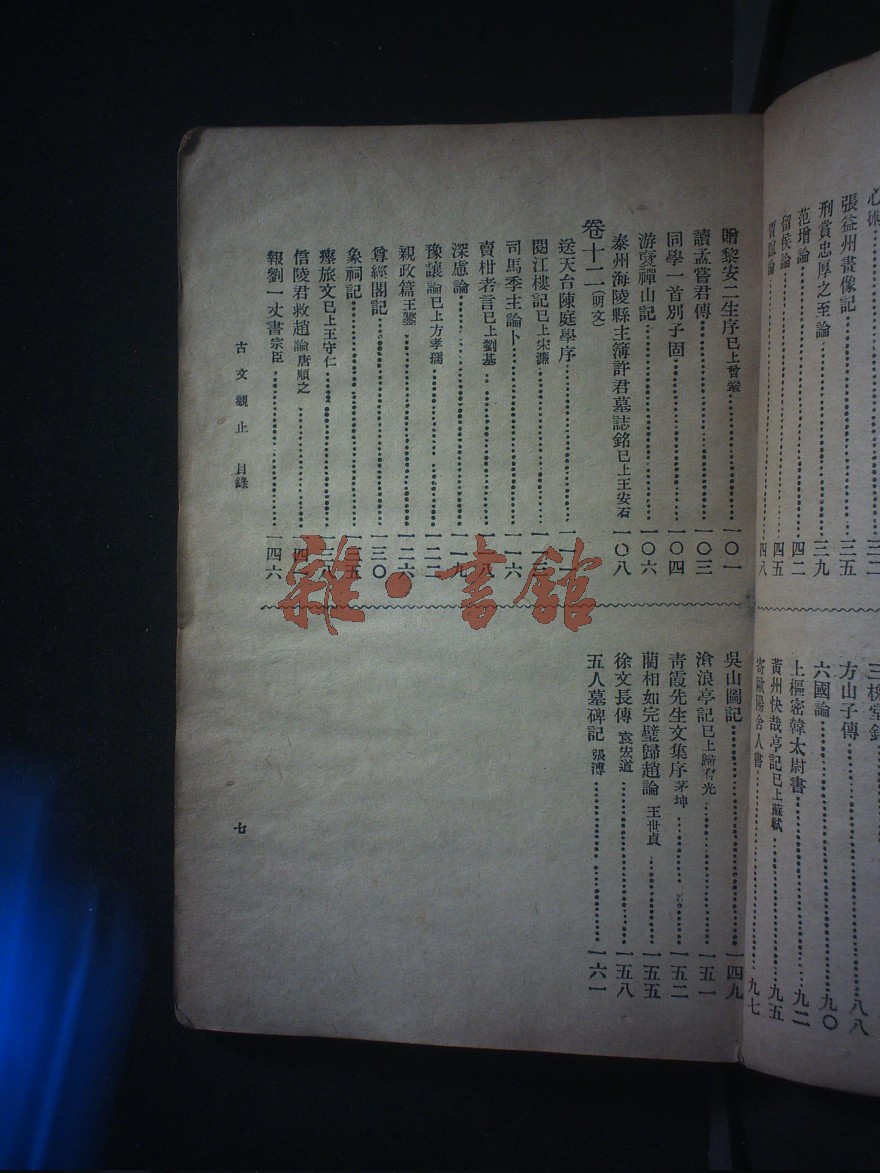 張益州畫像記………三五
刑賞忠厚之至論………三九
范增論………四二
留侯論………四五
賈誼論………四八
方山子傳………八八
六國論………九〇
上樞密韓太尉書………九二
黃州快哉亭記已上蘇轍………九五
寄歐陽舍人書………九七
贈黎安二生序已上曾鞏………一〇一
讀孟嘗君傳………一〇三
同學一首別子固………一〇四
游褒禪山記………一〇六
泰州海陵縣主簿許君墓誌銘已上王安石 一〇八
卷十二(明文)
送天台陳庭學序………一一一
閱江樓記已上宋濂………一一三
司馬季主論卜………一一六
賣柑者言已上劉基………一一八
深慮論………一一九
豫讓論已上方孝孺………一二二
親政篇王鏊………一二六
尊經閣記………一三〇
象祠記………一三五
瘞旅文已上王守仁………一三八
信陵君救趙論唐順之………一四一
報劉一丈書宗臣………一四六
吳山圖記………一四九
滄浪亭記已上歸有光………一五一
青霞先生文集序茅坤………一五二
藺相如完璧歸趙論 王世貞………一五五
徐文長傳 袁宏道………一五八
五人墓碑記 張溥………一六一
古文觀止 目錄
七
雜·書館